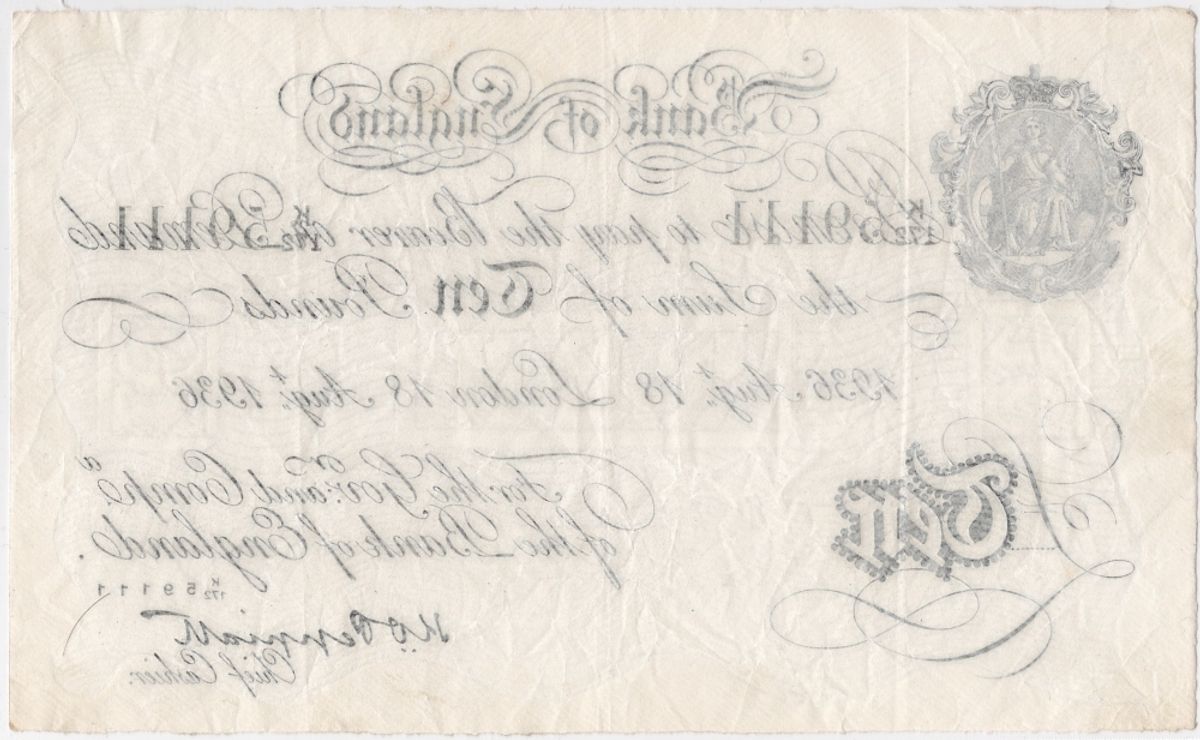 Bank of England
K/172 59111 to pay the Bearer on Demand K/172 59111
the Sum of Ten Pounds
1936 Augt. 18 London 18 Augt. 1936
For the Govr. and Compa.
of the Bank of England.
£ Ten
K/172 59111
K.O. Peppiatt
Chief Cashier.